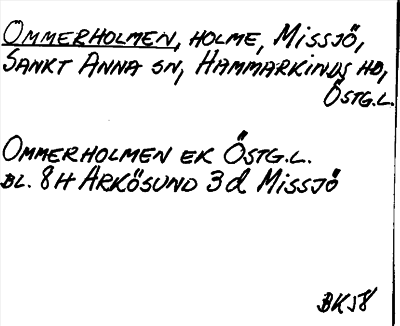 OMMERHOLMEN, HOLME, MISSJÖ,
SANKT ANNA SN, HAMMARKINDS HD,
ÖSTG.L.
OMMERHOLMEN EK ÖSTG.L.
BL. 8H ARKÖSUND 3d MISSJÖ
BKJ8